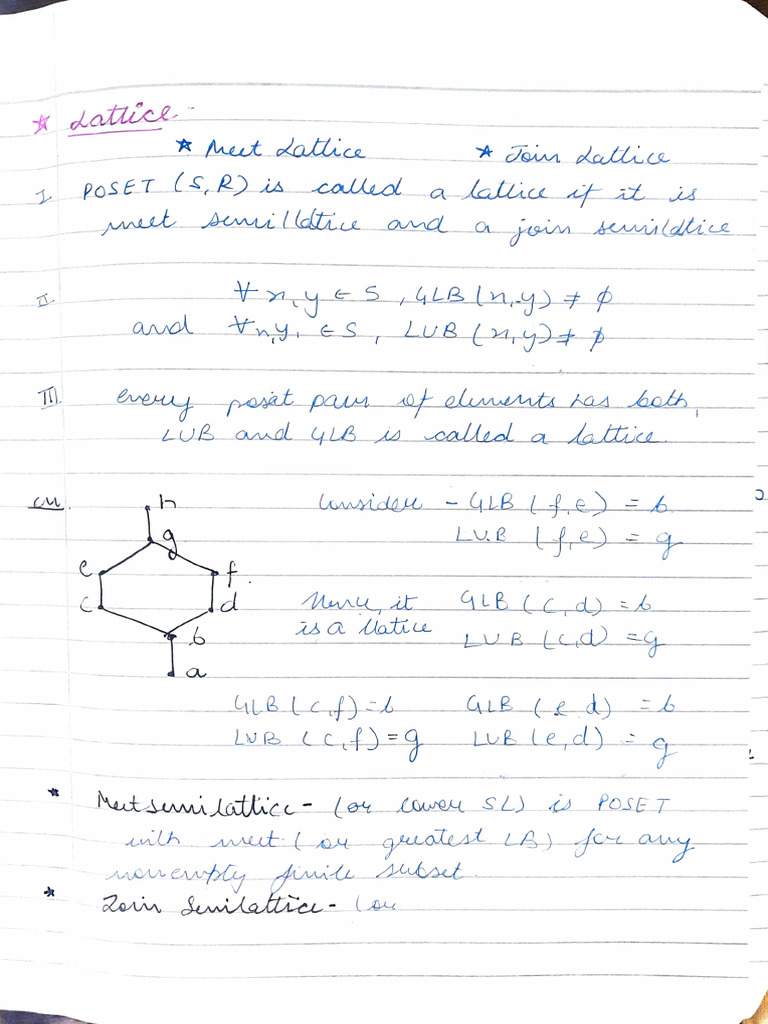 ☆ Lattice
★ Meet Lattice ★ Join Lattice
I. POSET (S,R) is called a lattice if it is
meet semillattice and a join semilattice
II. ∀ x,y ∈ S, GLB (x,y) ≠ ϕ
and ∀x,y, ∈ S, LUB (x,y) ≠ ϕ
III. every poset pair of elements has both,
LUB and GLB is called a lattice.
ex. h Consider - GLB (f,e) = b
g LUB (f,e) = g
e f
c d Hence, it GLB (c,d) = b
b is a llatice LUB (c,d) = g
a
GLB (c,f) = b GLB (e,d) = b
LUB (c,f) = g LUB (e,d) = g
* Meetsemilattice - (or lower SL) is POSET
with meet (or greatest LB) for any
nonempty finite subset.
* Join Semilattice - (or